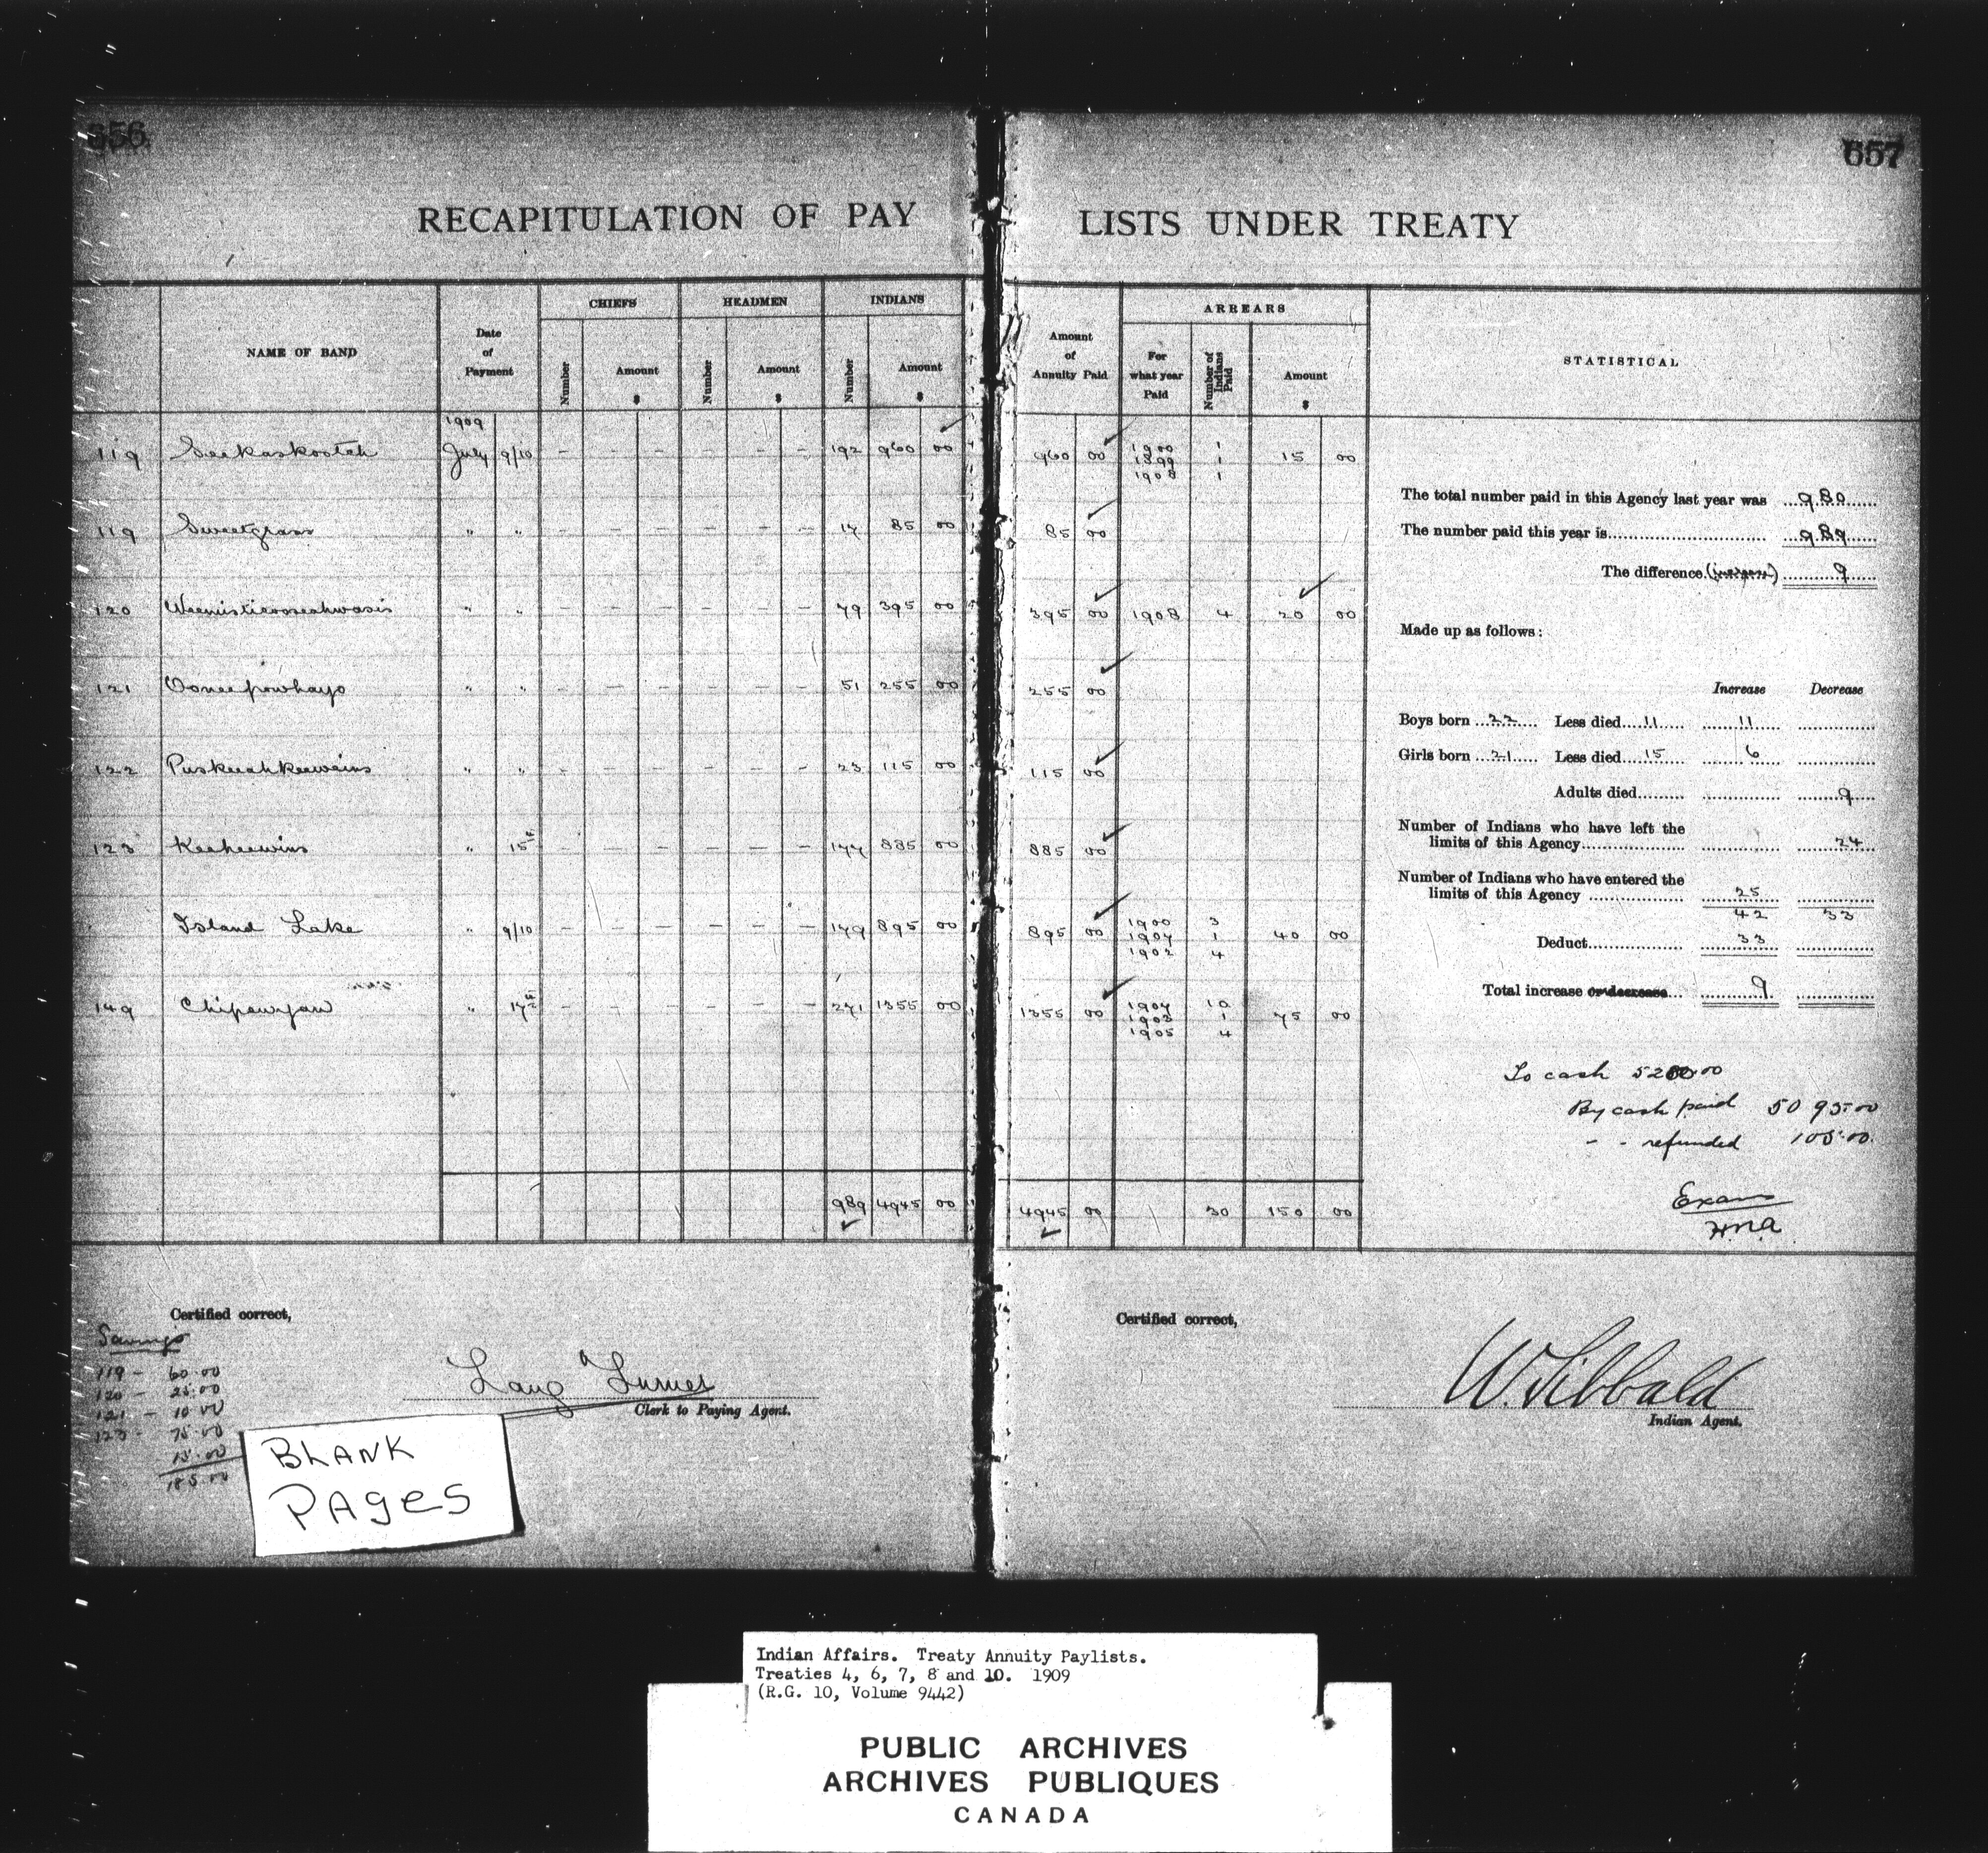 656
657
RECAPITULATION OF PAY LISTS UNDER TREATY
NAME OF BAND
Date of Payment
CHIEFS
Number
Amount
$
HEADMEN
Number
Amount
$
INDIANS
Number
Amount
$
Amount of Annuity Paid
ARREARS
For what year Paid
Number of Indians Paid
Amount
$
STATISTICAL
1909
119 Seekaskootch July 9/10 – – – – – – 192 960 00 960 00 1900 1 15 00
1899 1
1908 1
119 Sweetgrass " " – – – – – – 17 85 00 85 00
120 Weemisticooseahwasis " " – – – – – – 79 395 00 395 00 1908 4 20 00
121 Ooneepowhayo " " – – – – – – 51 255 00 255 00
122 Puskeeahkeeweins " " – – – – – – 23 115 00 115 00
123 Keeheewins " 15th – – – – – – 177 885 00 885 00
Island Lake " 9/10 – – – – – – 179 895 00 895 00 1900 3 40 00
1907 1
1902 4
149 Chipewyan " 17th – – – – – – 271 1355 00 1355 00 1907 10 75 00
1903 1
1905 4
989 4945 00 4945 00 30 150 00
The total number paid in this Agency last year was 980
The number paid this year is 989
The difference (increase) 9
Made up as follows:
Increase Decrease
Boys born 22 Less died 11 11
Girls born 21 Less died 15 6
Adults died 9
Number of Indians who have left the
limits of this Agency 24
Number of Indians who have entered the
limits of this Agency 25
42 33
Deduct 33
Total increase or decrease 9
To cash 5200.00
By cash paid 5095.00
- - refunded 105.00
Exam
H.N.A.
Certified correct,
Savings
119 – 60.00
120 – 25.00
121 – 10.00
123 – 75.00
15.00
185.00
Lang Turner
Clerk to Paying Agent.
Certified correct,
W. Sibbald
Indian Agent.
BLANK
PAgeS
Indian Affairs. Treaty Annuity Paylists.
Treaties 4, 6, 7, 8 and 10. 1909
(R.G. 10, Volume 9442)
PUBLIC ARCHIVES
ARCHIVES PUBLIQUES
CANADA